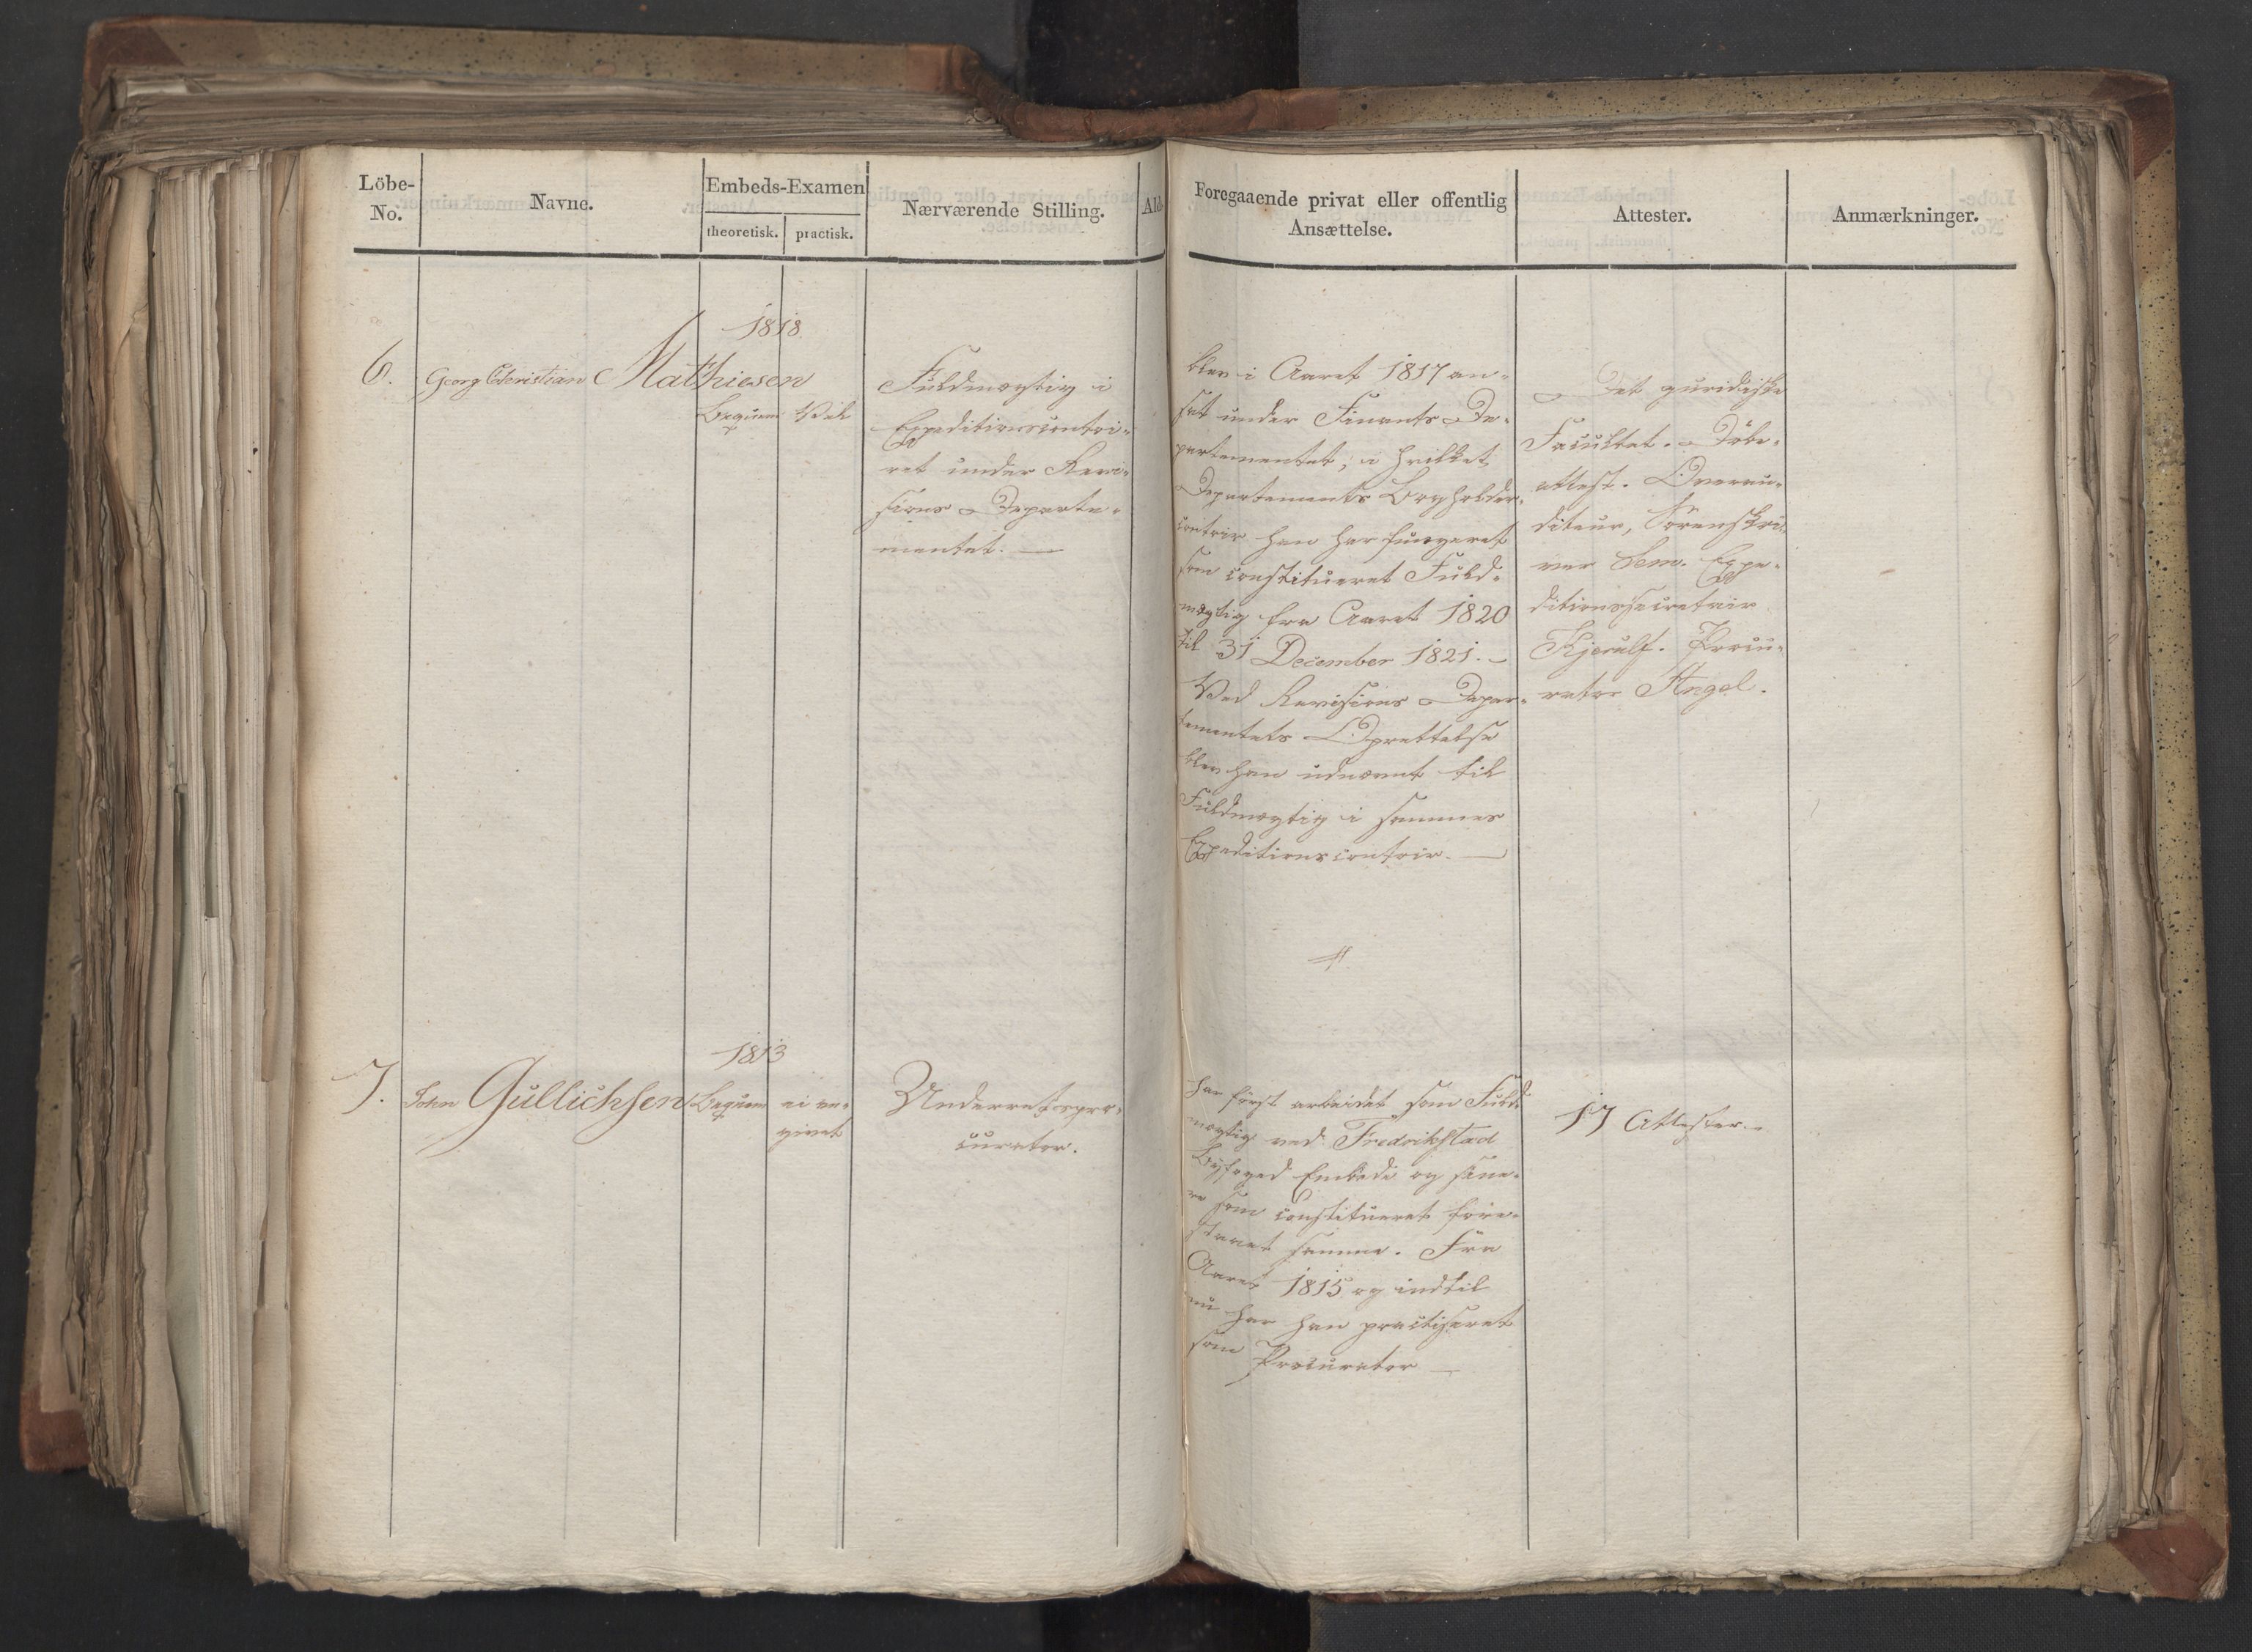 Löbe-
No.
Navne.
Embeds-Examen
theoretisk. practisk.
Nærværende Stilling.
Ald.
Foregaaende privat eller offentlig
Ansættelse.
Attester.
Anmærkninger.
1818
6. Georg Christian Mathiesen
beqvem Vel
Fuldmægtig i
Expeditionscontoi-
ret under Revi-
sions Departe-
mentet. —
blev i Aaret 1817 an-
sat under Finants De-
partementet, i hvilket
Departements Bogholder-
contoir han har fungeret
som constitueret Fuld-
mægtig fra Aaret 1820
til 31 December 1821. —
Ved Revisions Depar-
tementets Oprettelse
blev han udnævnt til
Fuldmægtig i sammes
Expeditionscontoir. —
Det juridiske
Facultet. Döbe-
attest. Overau-
diteur, Sorenskri-
ver Lem. Expe-
ditionssecretair
Kjerulf. Procu-
rator Angel.
1813
7. John Gullichsen beqvem ei an-
givet
Underretspro-
curator.
har först arbeidet som Fuld-
mægtig ved Fredrikstad
Byfoged Embede og sene-
re som constitueret fore-
staaet samme. Fra
Aaret 1815 og indtil
nu har han practiseret
som Procurator —
17 Attester. -